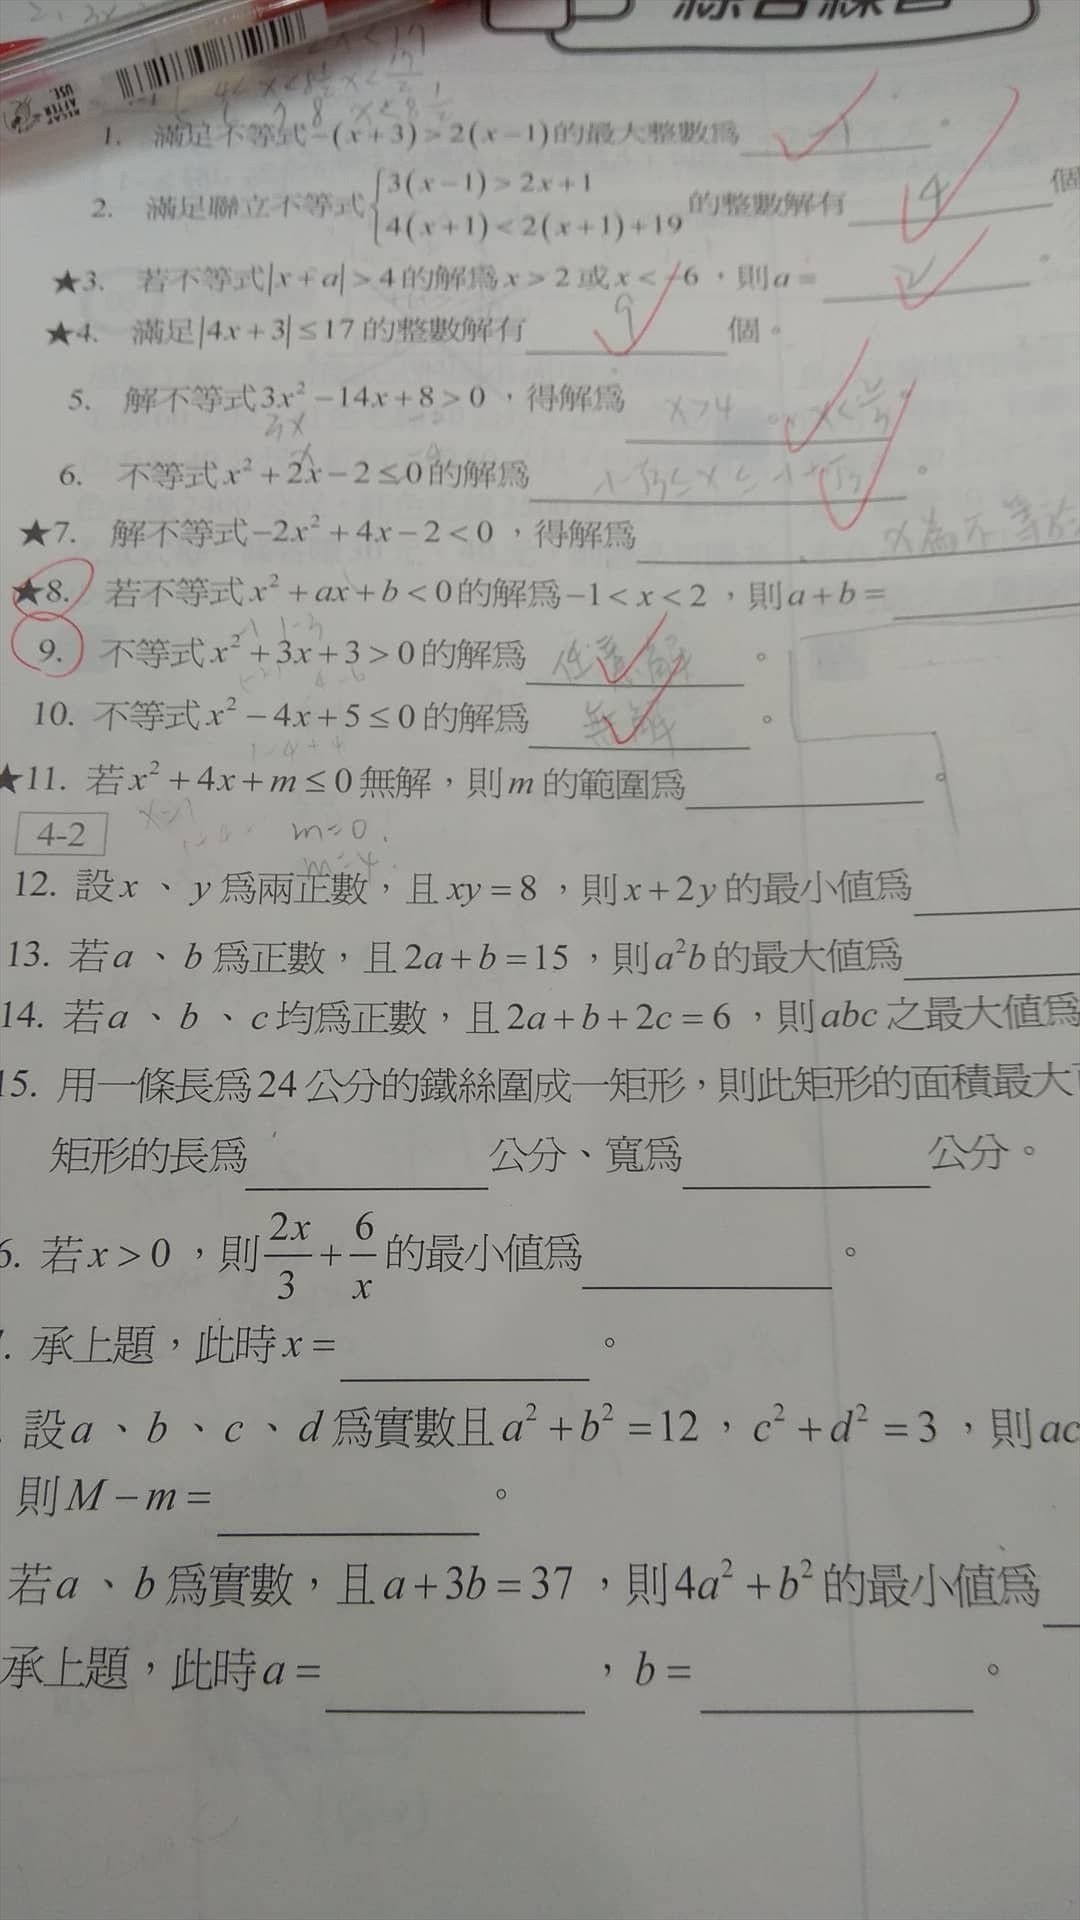 綜合練習
1. 滿足不等式-(x+3)>2(x-1)的最大整數爲 -1 。
2. 滿足聯立不等式{3(x-1)>2x+1
4(x+1)<2(x+1)+19 的整數解有 4 個
★3. 若不等式|x+a|>4的解爲x>2或x<-6，則a= 2 。
★4. 滿足|4x+3|≤17的整數解有 9 個。
5. 解不等式3x²-14x+8>0，得解爲 x>4 。x<2/3
6. 不等式x²+2x-2≤0的解爲 -1-√3≤x≤-1+√3 。
★7. 解不等式-2x²+4x-2<0，得解爲 x為不等於
★8. 若不等式x²+ax+b<0的解爲-1<x<2，則a+b=
9. 不等式x²+3x+3>0的解爲 任意解 。
10. 不等式x²-4x+5≤0的解爲 無解 。
★11. 若x²+4x+m≤0無解，則m的範圍爲 。
m=0.
m=4.
4-2
12. 設x、y爲兩正數，且xy=8，則x+2y的最小値爲
13. 若a、b爲正數，且2a+b=15，則a²b的最大値爲
14. 若a、b、c均爲正數，且2a+b+2c=6，則abc之最大値爲
15. 用一條長爲24公分的鐵絲圍成一矩形，則此矩形的面積最大
矩形的長爲 公分、寬爲 公分。
6. 若x>0，則2x/3+6/x的最小値爲 。
. 承上題，此時x= 。
設a、b、c、d爲實數且a²+b²=12，c²+d²=3，則ac
則M-m= 。
若a、b爲實數，且a+3b=37，則4a²+b²的最小値爲
承上題，此時a= ，b= 。